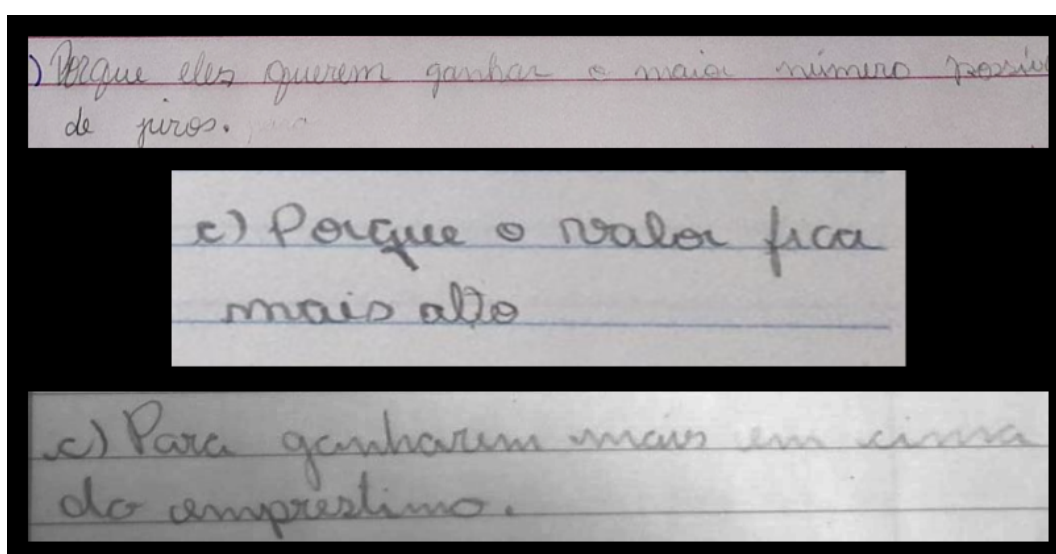 ) Porque eles querem ganhar o maior número possív
de juros.
c) Porque o valor fica
mais alto
c) Para ganharem mais em cima
do emprestimo.